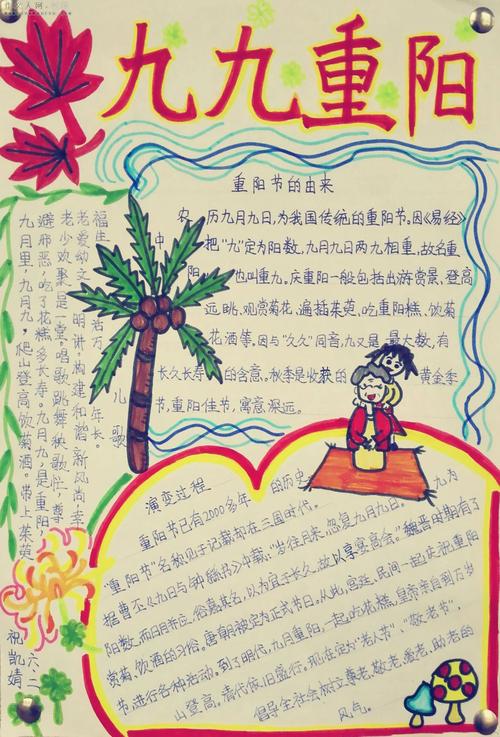 九九重阳
重阳节的由来
农历九月九日,为我国传统的重阳节。因《易经》
中把“九”定为阳数,九月九日两九相重,故名重
阳,也叫重九。庆重阳一般包括出游赏景、登高
远眺、观赏菊花、遍插茱萸、吃重阳糕、饮菊
花酒等,因与“久久”同音,九又是最大数,有
长久长寿的含意。秋季是收获的黄金季
节,重阳佳节,寓意深远。
儿歌
九月里,九月九,爬山登高饮菊酒。带上茱萸
避邪恶,吃了花糕多长寿。九月九,是重阳,
老少欢聚是一堂。唱歌跳舞秧歌忙,尊
老爱幼文明讲。构建和谐新风尚,幸
福生活万年长。
演变过程
重阳节已有2000多年的历史
“重阳节”名称见于记载却在三国时代。
据曹丕《九日与钟繇书》中载:“岁往月来,忽复九月九日。九为
阳数,而日月并应,俗嘉其名,以为宜于长久,故以享宴高会。”魏晋时期有了
赏菊、饮酒的习俗。唐朝被定为正式节日。从此,宫廷、民间一起庆祝重阳
节,进行各种活动。到了明代,九月重阳,一起吃花糕,皇帝亲自到万岁
山登高。清代依旧盛行。现在定为“老人节”、“敬老节”,
倡导全社会树立尊老、敬老、爱老、助老的
风气。
六、二
祝凯婧